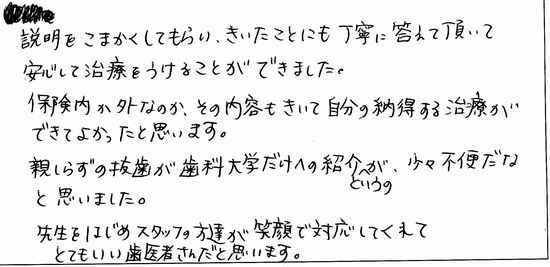 説明をこまかくしてもらい、きいたことにも丁寧に答えて頂いて
安心して治療をうけることができました。
保険内か外なのか、その内容もきいて自分の納得する治療が
できてよかったと思います。
親しらずの抜歯が歯科大学だけへの紹介というのが、少々不便だな
と思いました。
先生をはじめスタッフの方達が笑顔で対応してくれて
とてもいい歯医者さんだと思います。